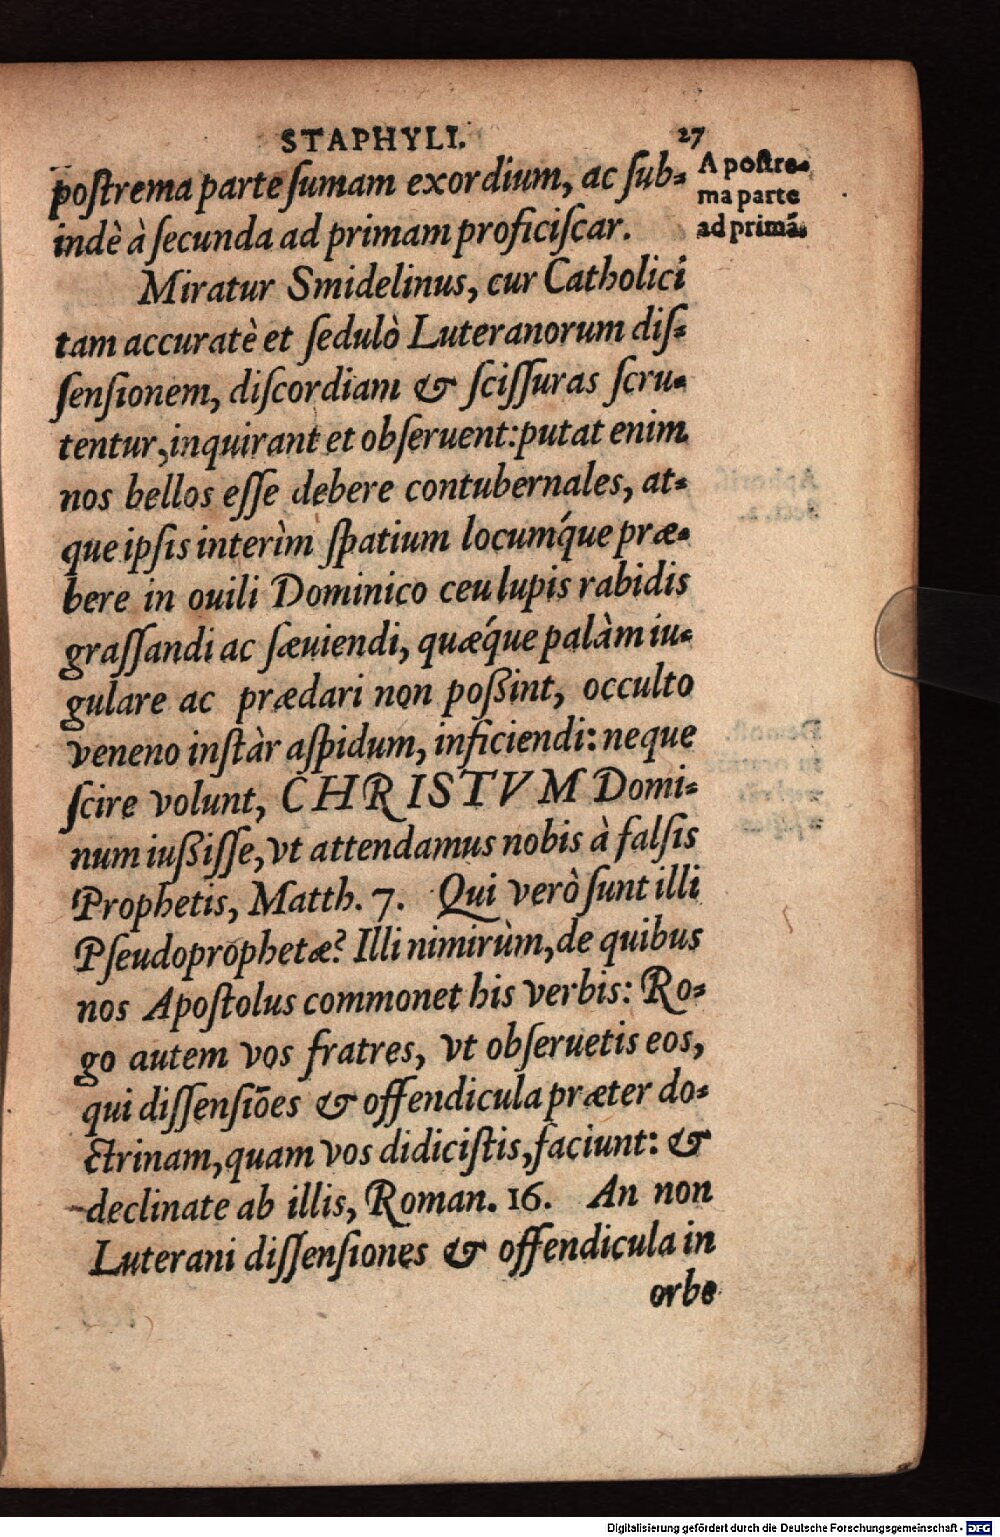 STAPHYLI. 27
poſtrema parte ſumam exordium, ac ſub-
indè à ſecunda ad primam proficiſcar.
A poſtre-
ma parte
ad primā.
Miratur Smidelinus, cur Catholici
tam accuratè et ſedulò Luteranorum diſ-
ſenſionem, diſcordiam & ſciſſuras ſcru-
tentur, inquirant et obſeruent: putat enim
nos bellos eſſe debere contubernales, at-
que ipſis interìm ſpatium locumq́ue præ-
bere in ouili Dominico ceu lupis rabidis
graſſandi ac ſæuiendi, quæq́ue palàm iu-
gulare ac prædari non poßint, occulto
veneno inſtàr aſpidum, inficiendi: neque
ſcire volunt, CHRISTVM Domi-
num iußiſſe, vt attendamus nobis à falſis
Prophetis, Matth. 7. Qui verò ſunt illi
Pſeudoprophetæ? Illi nimirùm, de quibus
nos Apoſtolus commonet his verbis: Ro-
go autem vos fratres, vt obſeruetis eos,
qui diſſenſiōes & offendicula præter do-
ctrinam, quam vos didiciſtis, faciunt: &
declinate ab illis, Roman. 16. An non
Luterani diſſenſiones & offendicula in
orbe
Digitalisierung gefördert durch die Deutsche Forschungsgemeinschaft - DFG